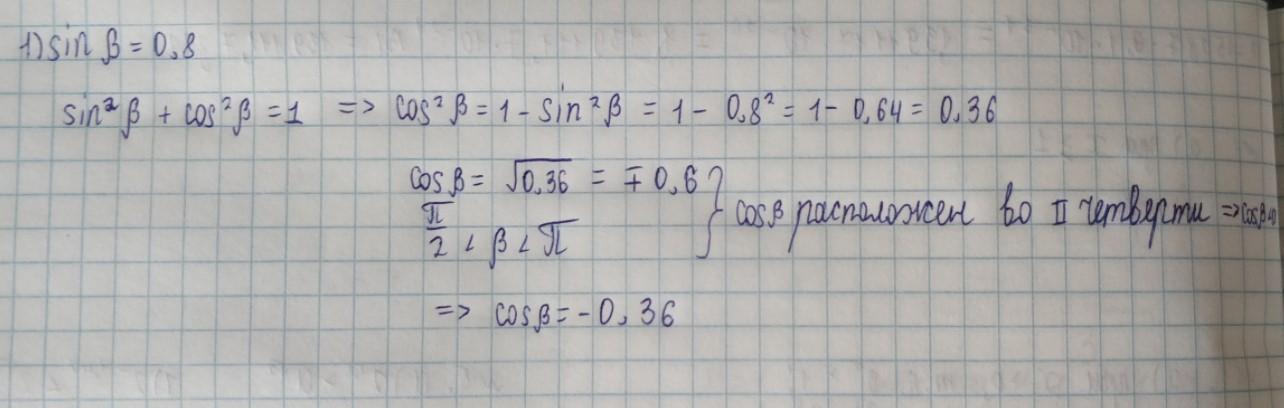 1) sin β = 0,8
sin² β + cos² β = 1 => cos² β = 1 - sin² β = 1 - 0,8² = 1 - 0,64 = 0,36
cos β = √0,36 = ∓ 0,6
π/2 < β < π } cosβ расположен во II четверти => cosβ<0
=> cosβ = -0,36